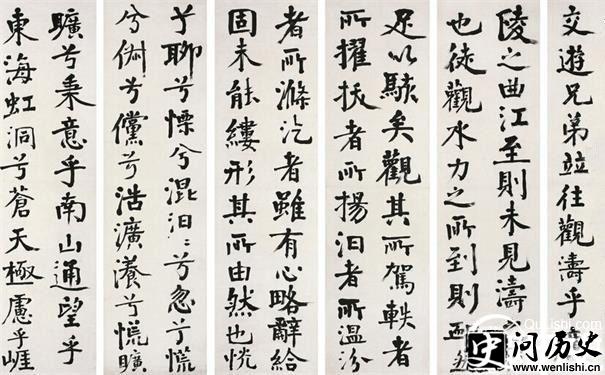 交遊兄弟並往觀濤乎
陵之曲江至則未見濤之
也徒觀水力之所到則
足以駭矣觀其所駕軼者
所擢拔者所揚汩者所温汾
者所滌汔者雖有心略辭給
固未能縷形其所由然也怳
兮聊兮慄兮混汩〻兮忽兮慌
兮俶兮儻兮浩瀇瀁兮慌曠
曠兮秉意乎南山通望乎
東海虹洞兮蒼天極慮乎崕
QuLiShi.com
问历史
www.wenlishi.cn